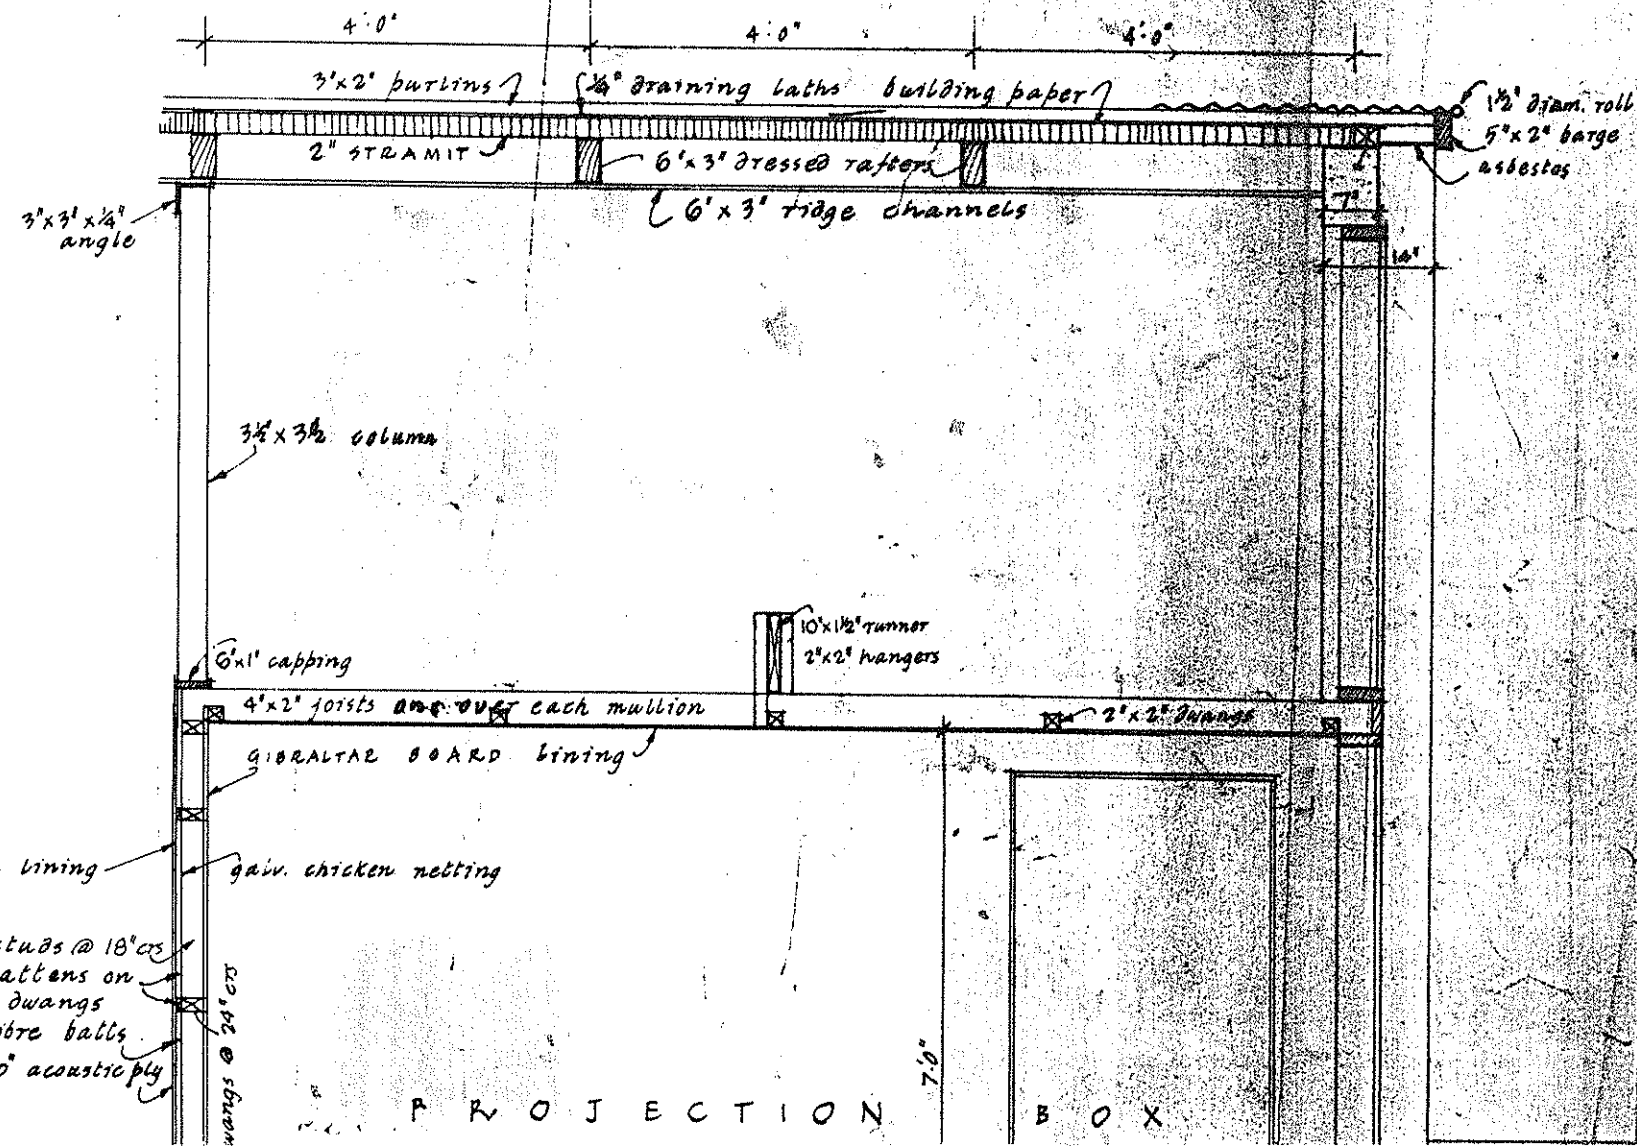 4'.0"
4'.0"
4'.0"
3"x2" purlins
1/4" draining laths
building paper
1½" diam. roll
5"x2" barge
asbestos
2" STRAMIT
6"x3" dressed rafters
6"x3" ridge channels
3"x3"x¼"
angle
7"
14"
3½"x3½ column
10"x1½" runner
2"x2" hangers
6"x1" capping
4"x2" joists one over each mullion
2"x2" dwangs
GIBRALTAR BOARD lining
lining
galv. chicken netting
studs @ 18"crs
battens on
dwangs
fibre batts
acoustic ply
dwangs @ 24"crs
7.0"
PROJECTION BOX